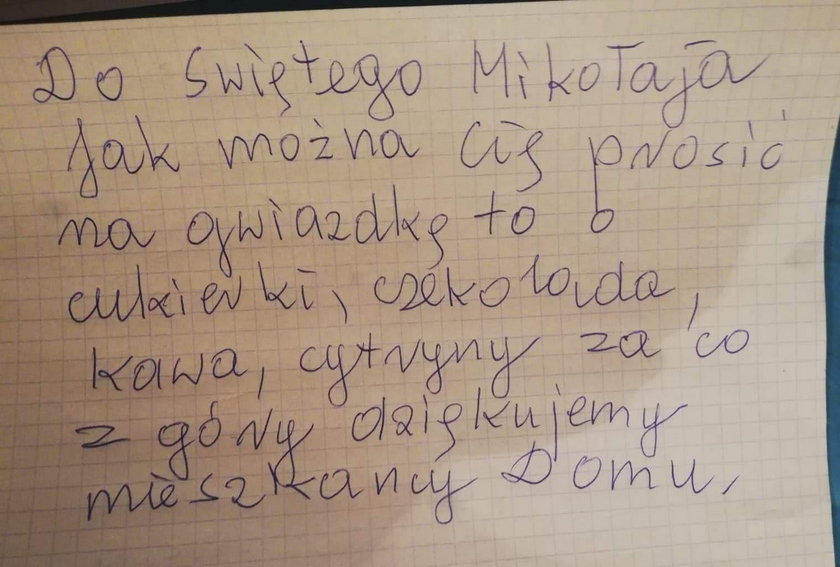 Do Świętego Mikołaja
Jak można Cię prosić
na gwiazdkę to o
cukierki, czekolada,
kawa, cytryny za co
z góry dziękujemy
mieszkańcy Domu,